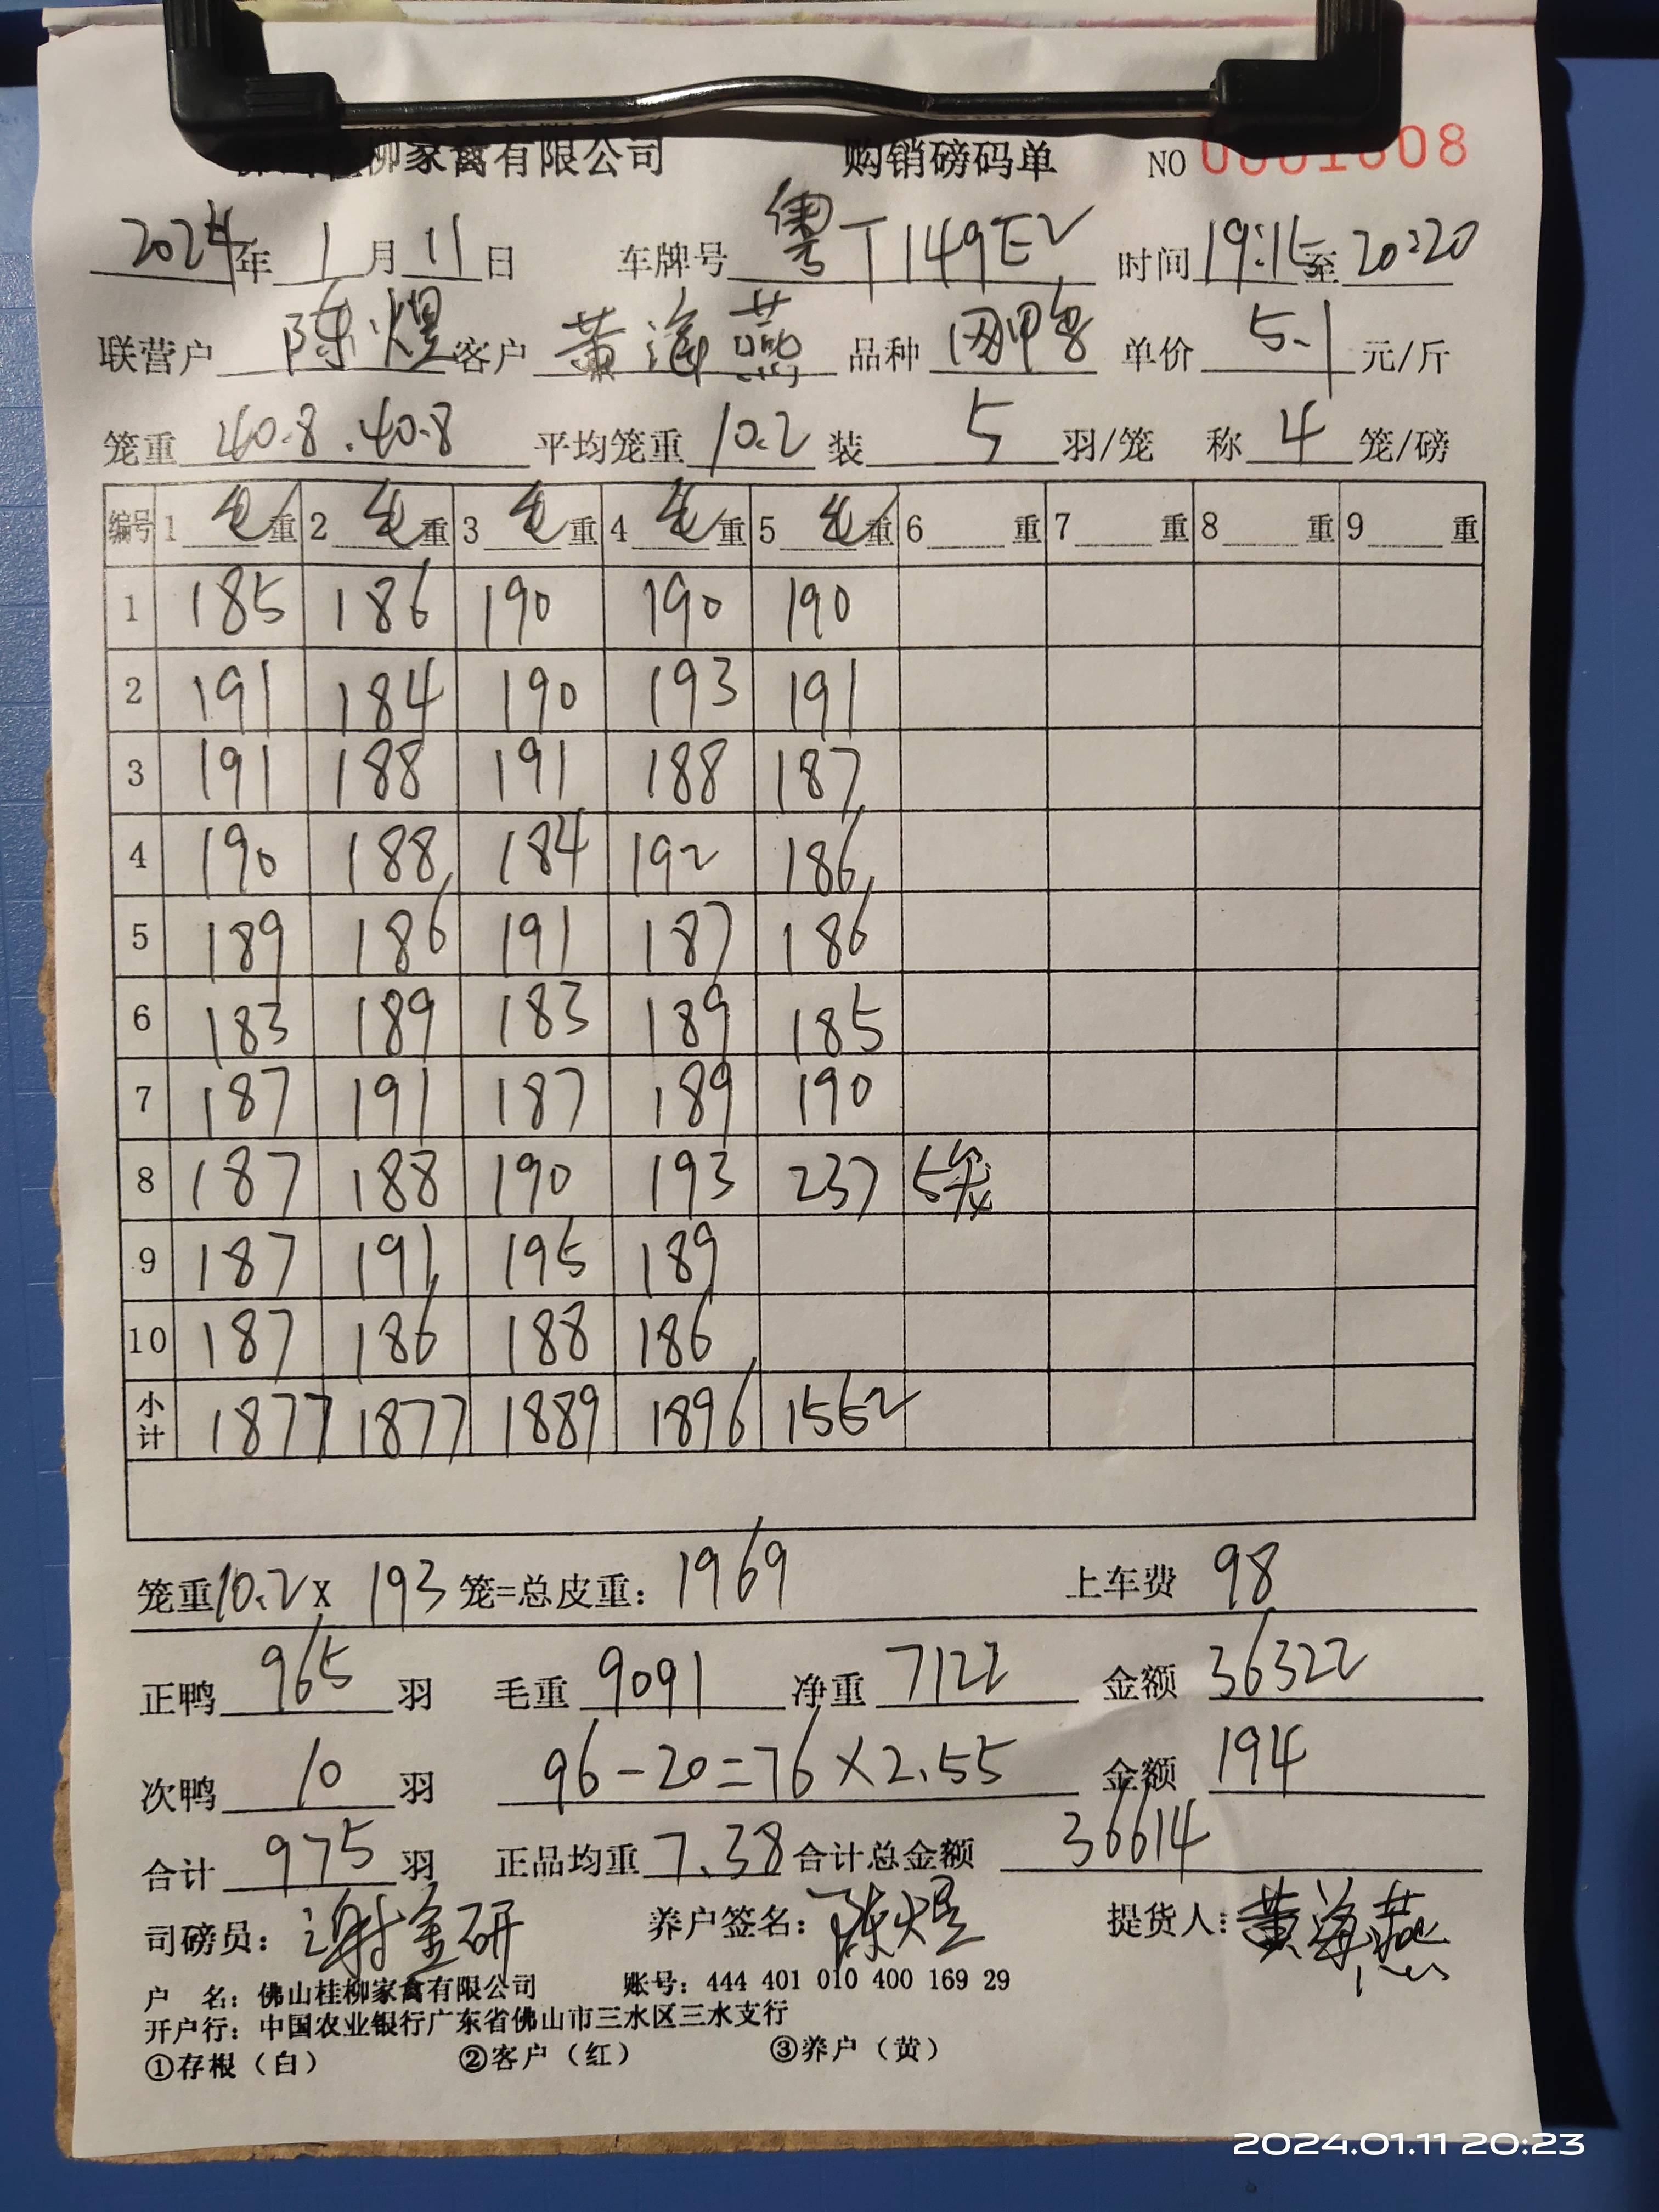 柳家禽有限公司 购销磅码单 NO
2024年1月11日 车牌号 粤T149E2 时间19:15至20:20
联营户 陈煜 客户 黄海燕 品种 单价 5.1 元/斤
笼重 40.8.40.8 平均笼重 10.2 装 5 羽/笼 称 4 笼/磅
编号 1 毛重 2 毛重 3 毛重 4 毛重 5 毛重 6 重 7 重 8 重 9 重
1 185 186 190 190 190
2 191 184 190 193 191
3 191 188 191 188 187
4 190 188 184 192 186
5 189 186 191 187 186
6 183 189 183 189 185
7 187 191 187 189 190
8 187 188 190 193 237 5笼
9 187 191 195 189
10 187 186 188 186
小计 1877 1877 1889 1896 1552
笼重10.2X 193 笼=总皮重：1969 上车费 98
正鸭 965 羽 毛重 9091 净重 7122 金额 36322
次鸭 10 羽 96-20=76×2.55 金额 194
合计 975 羽 正品均重 7.38 合计总金额 36614
司磅员：谢金研 养户签名：陈煜 提货人：黄海燕
户 名：佛山桂柳家禽有限公司 账号：444 401 010 400 169 29
开户行：中国农业银行广东省佛山市三水区三水支行
①存根（白） ②客户（红） ③养户（黄）
2024.01.11 20:23